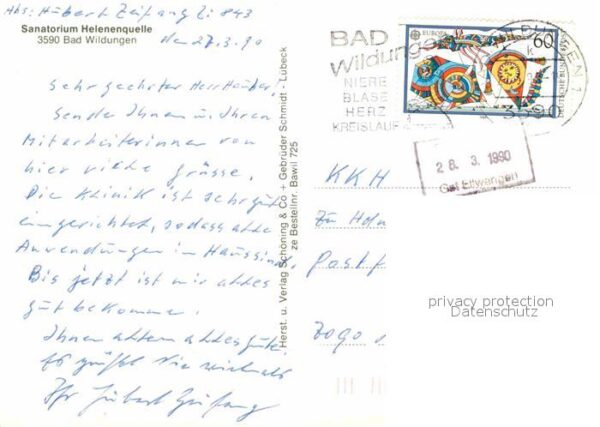 Abs: Hubert Zeifang Zi 843
Sanatorium Helenenquelle
3590 Bad Wildungen
den 27.3.90
Sehr geehrter Herr
Sende Ihnen u. Ihren
Mitarbeiterinnen von
hier viele Grüsse.
Die Klinik ist sehr gut
eingerichtet, sodass alle
Anwendungen im Haus sind.
Bis jetzt ist mir alles
gut bekommen.
Ihnen allen alles gute.
Es grüßt Sie
Ihr Hubert Zeifang
Herst. u. Verlag Schöning & Co + Gebrüder Schmidt - Lübeck
ze Bestellnr. Bawil 725
BAD
Wildungen
NIERE
BLASE
HERZ
KREISLAUF
EUROPA
60
DEUTSCHE BUNDESPOST
3590
28. 3. 1990
KKH
Postf
privacy protection
Datenschutz